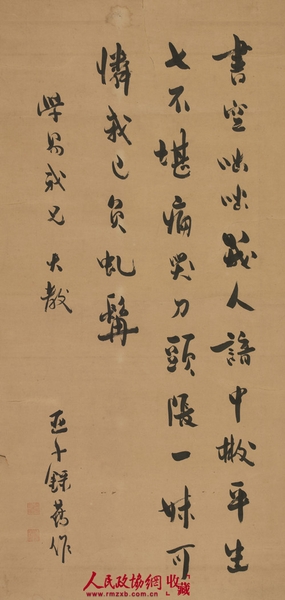 書空咄咄幾人諳中散平生
七不堪痛哭刀頭張一妹可
憐我已負虬髯
學易我兄 大教
亞子錄舊作
人民政協網 收藏
www.rmzxb.com.cn